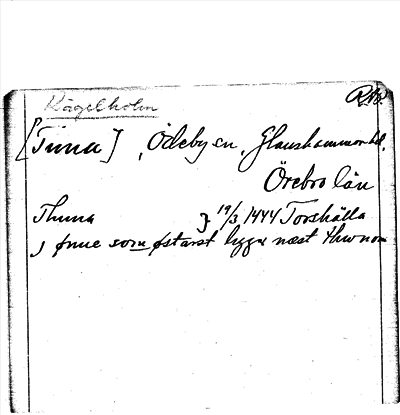 Kägelholm RAp.
[Tuna], Ödeby sn, Glanshammars hd,
Örebro län
Thuna } 19/3 1444 Torshälla
j ønne som østarst ligger næst thwnom